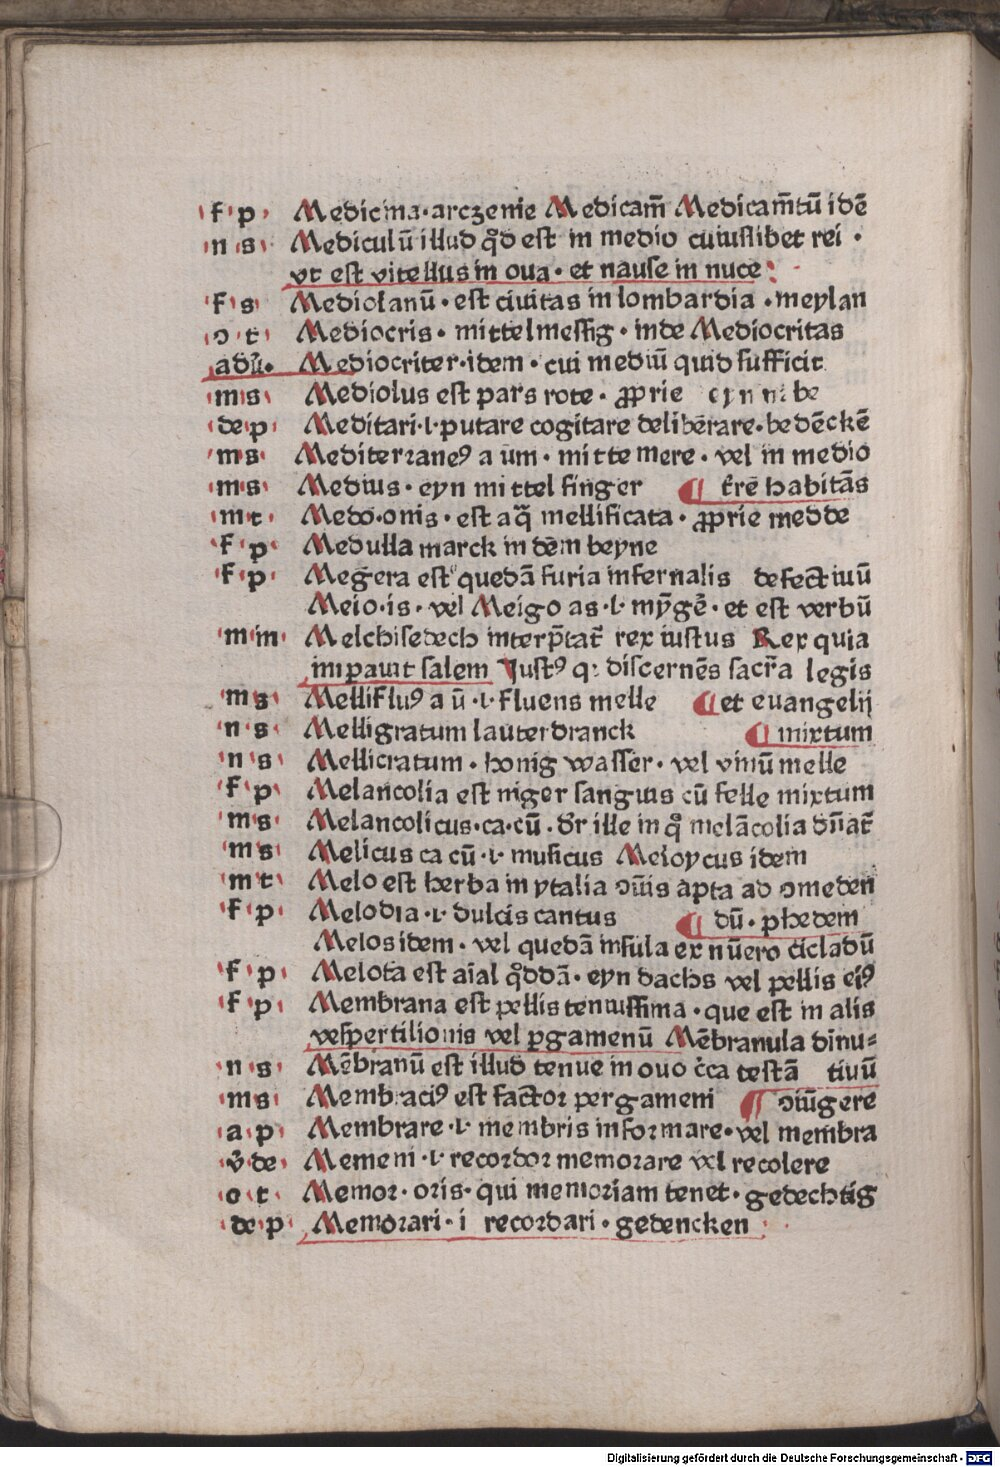 f p Medicina · arczenie Medicam̄ Medicam̄tū idē
n s Mediculū illud qd̄ est in medio cuiuslibet rei ·
vt est vitellus in oua · et nause in nuce :
f s Mediolanū · est ciuitas in lombardia · meylan
ↄ t Mediocris · mittelmessig · inde Mediocritas
adū · Mediocriter · idem · cui mediū quid sufficit
m s Mediolus est pars rote · ꝓprie eyn n be
de p Meditari · l · putare cogitare delibērare · bedēckē
m s Mediterraneꝰ a ūm · mitte mere · vel in medio
m s Medius · eyn mittel finger ¶ t̄rē habitās
m t Medo · onis · est aq̄ mellificata · ꝓprie medde
f p Medulla marck in dēm beyne
f p Megera est quedā furia infernalis defectiuū
Meio · is · vel Meigo as · l · mȳgē · et est verbū
m m Melchisedech interp̄tat̄ rex iustus Rex quia
imꝑauit salem Justꝰ q: discernēs sacr̄a legis
m s Mellifluꝰ a ū · l · fluens melle ¶ et euangelij
n s Melligratum lauterdranck ¶ mixtum
n s Mellicratum · honig wasser · vel vinū melle
f p Melancolia est niger sanguis cū felle mixtum
m s Melancolicus · ca · cū · dr̄ ille in q̊ melācolia dn̄at̄
m s Melicus ca cū · l · musicus Meloycus idem
m t Melo est herba in ytalia ↄūis apta ad ↄmeden
f p Melodia · l · dulcis cantus ¶ dū · phedem
Melos idem · vel quedā insula ex nūero cicladū
f p Melota est aīal qd̄dā · eyn dachs vel pellis eiꝰ
f p Membrana est pellis tenuissima · que est in alis
vespertilionis vel ꝑgamenū Mēbranula dīnu=
n s Mēbranū est illud tenue in ouo c̄ca testā tiuū
m s Membraciꝰ est factor pergameni ¶ ↄiūgere
a p Membrare · l · membris informare · vel membra
v̄ de Memeni · l · recordor memorare vel recolere
o t Memor · oris · qui memoriam tenet · gedechtig
de p Memorari · i recordari · gedencken
Digitalisierung gefördert durch die Deutsche Forschungsgemeinschaft - DFG